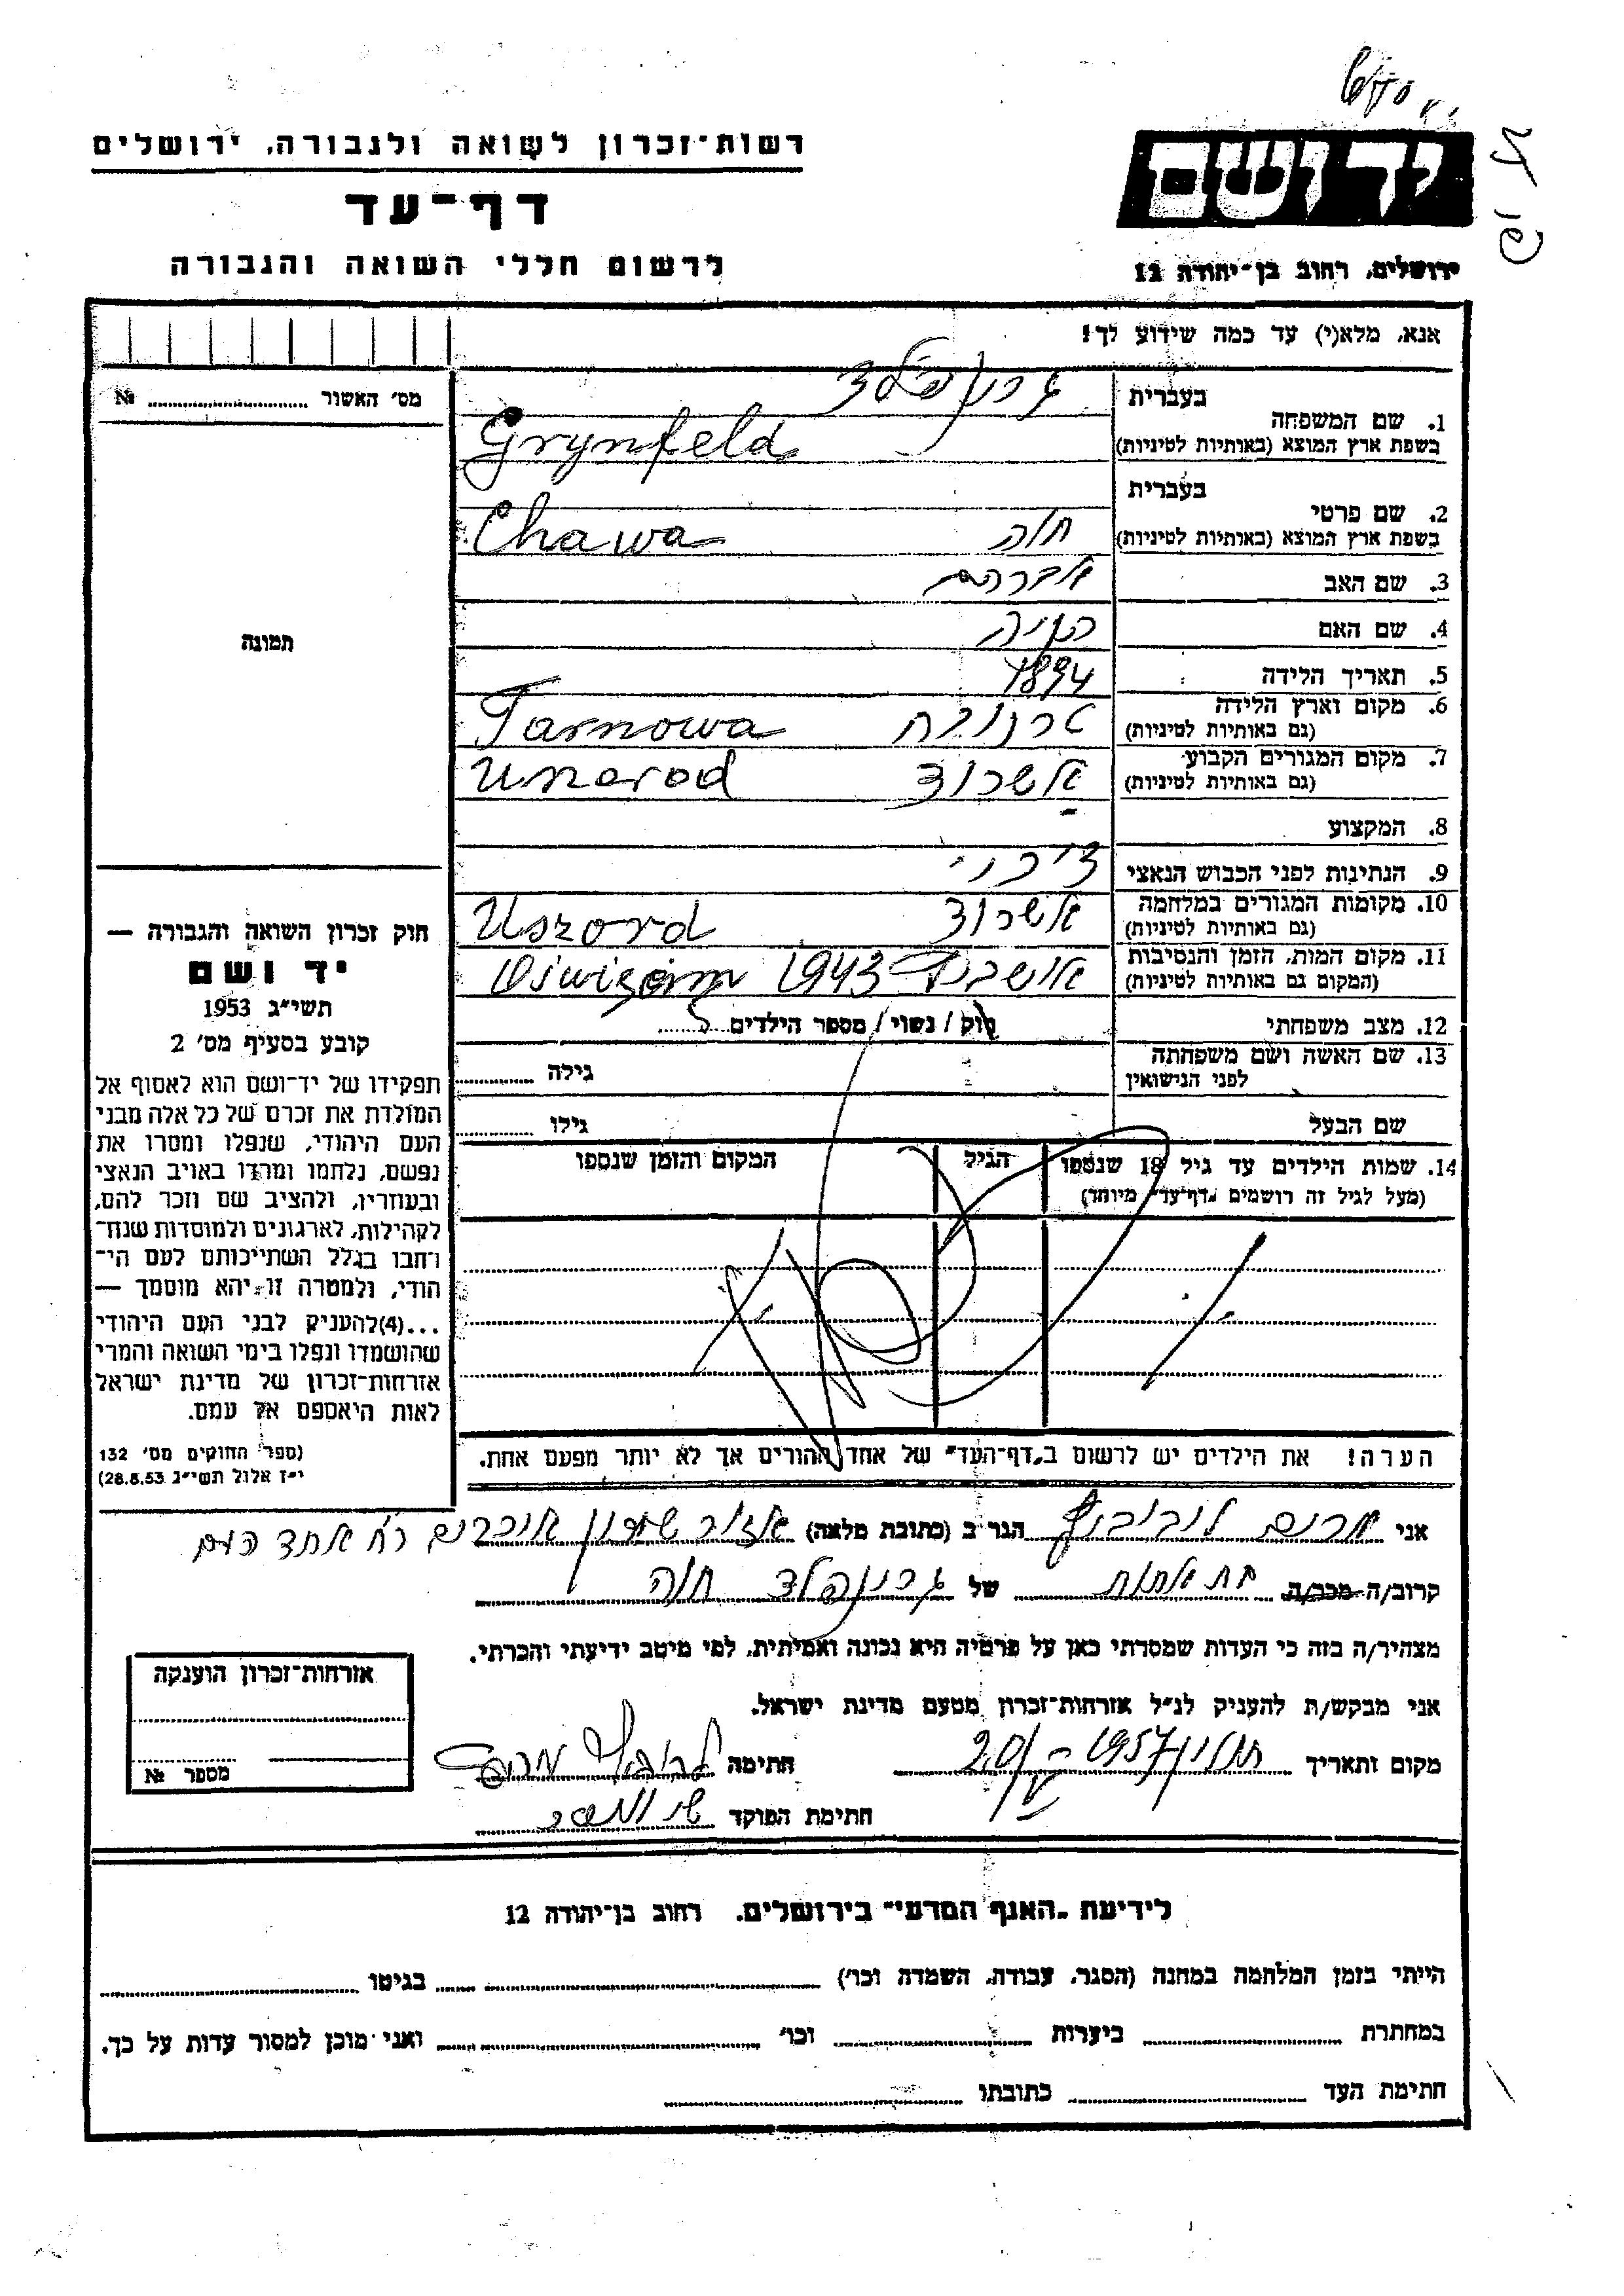 רשות־זכרון לשואה ולגבורה, ירושלים
דף־עד
לרשום חללי השואה והגבורה
יד ושם
ירושלים, רחוב בן־יהודה 12
אנא, מלא(י) עד כמה שידוע לך!
מס׳ האשור № 
תמונה
בעברית גרינפלד
1. שם המשפחה
בשפת ארץ המוצא (באותיות לטיניות) Grynfeld
בעברית
2. שם פרטי
בשפת ארץ המוצא (באותיות לטיניות) חוה Chawa
3. שם האב אברהם
4. שם האם
5. תאריך הלידה 1894
6. מקום וארץ הלידה
(גם באותיות לטיניות) טרנובה Tarnowa
7. מקום המגורים הקבוע
(גם באותיות לטיניות) אשרוד
8. המקצוע
9. הנתינות לפני הכבוש הנאצי
10. מקומות המגורים במלחמה
(גם באותיות לטיניות) אשרוד Uszord
11. מקום המות, הזמן והנסיבות
(המקום גם באותיות לטיניות) 1943
12. מצב משפחתי רוק / נשוי / מספר הילדים
13. שם האשה ושם משפחתה
לפני הנישואין גילה
שם הבעל גילו
14. שמות הילדים עד גיל 18 שנספו הגיל המקום והזמן שנספו
(מעל לגיל זה רושמים "דף־עד" מיוחד)
הערה! את הילדים יש לרשום ב"דף־העד" של אחד ההורים אך לא יותר מפעם אחת.
חוק זכרון השואה והגבורה —
יד ושם
תשי״ג 1953
קובע בסעיף מס׳ 2
תפקידו של יד־ושם הוא לאסוף אל
המולדת את זכרם של כל אלה מבני
העם היהודי, שנפלו ומסרו את
נפשם, נלחמו ומרדו באויב הנאצי
ובעוזריו, ולהציב שם וזכר להם,
לקהילות, לארגונים ולמוסדות שנח־
רבו בגלל השתייכותם לעם הי־
הודי, ולמטרה זו יהא מוסמך —
...(4)להעניק לבני העם היהודי
שהושמדו ונפלו בימי השואה והמרי
אזרחות־זכרון של מדינת ישראל
לאות היאספם אל עמם.
(ספר החוקים מס׳ 132
י״ז אלול תשי״ג 28.8.53)
אני מרים הגר ב (כתובת מלאה) אזור אחד העם
קרוב/ה מכר/ה בת אחות של גרינפלד חוה
מצהיר/ה בזה כי העדות שמסרתי כאן על פרטיה היא נכונה ואמיתית, לפי מיטב ידיעתי והכרתי.
אני מבקש/ת להעניק לנ״ל אזרחות־זכרון מטעם מדינת ישראל.
מקום ותאריך חולון 1957 חתימה
חתימת הפוקד
אזרחות־זכרון הוענקה
מספר №
לידיעת "האגף המדעי" בירושלים, רחוב בן־יהודה 12
הייתי בזמן המלחמה במחנה (הסגר, עבודה, השמדה וכו׳) בגיטו
במחתרת ביערות וכו׳ ואני מוכן למסור עדות על כך.
חתימת העד כתובתו